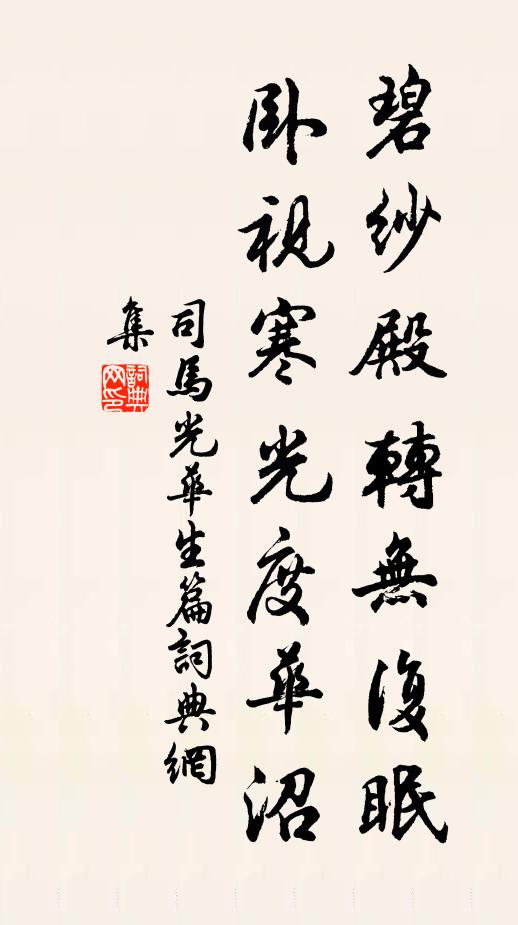 碧紗殿轉無復眠
卧視寒光度華沼
司馬光華生篇詞典網
集
詞典
网印